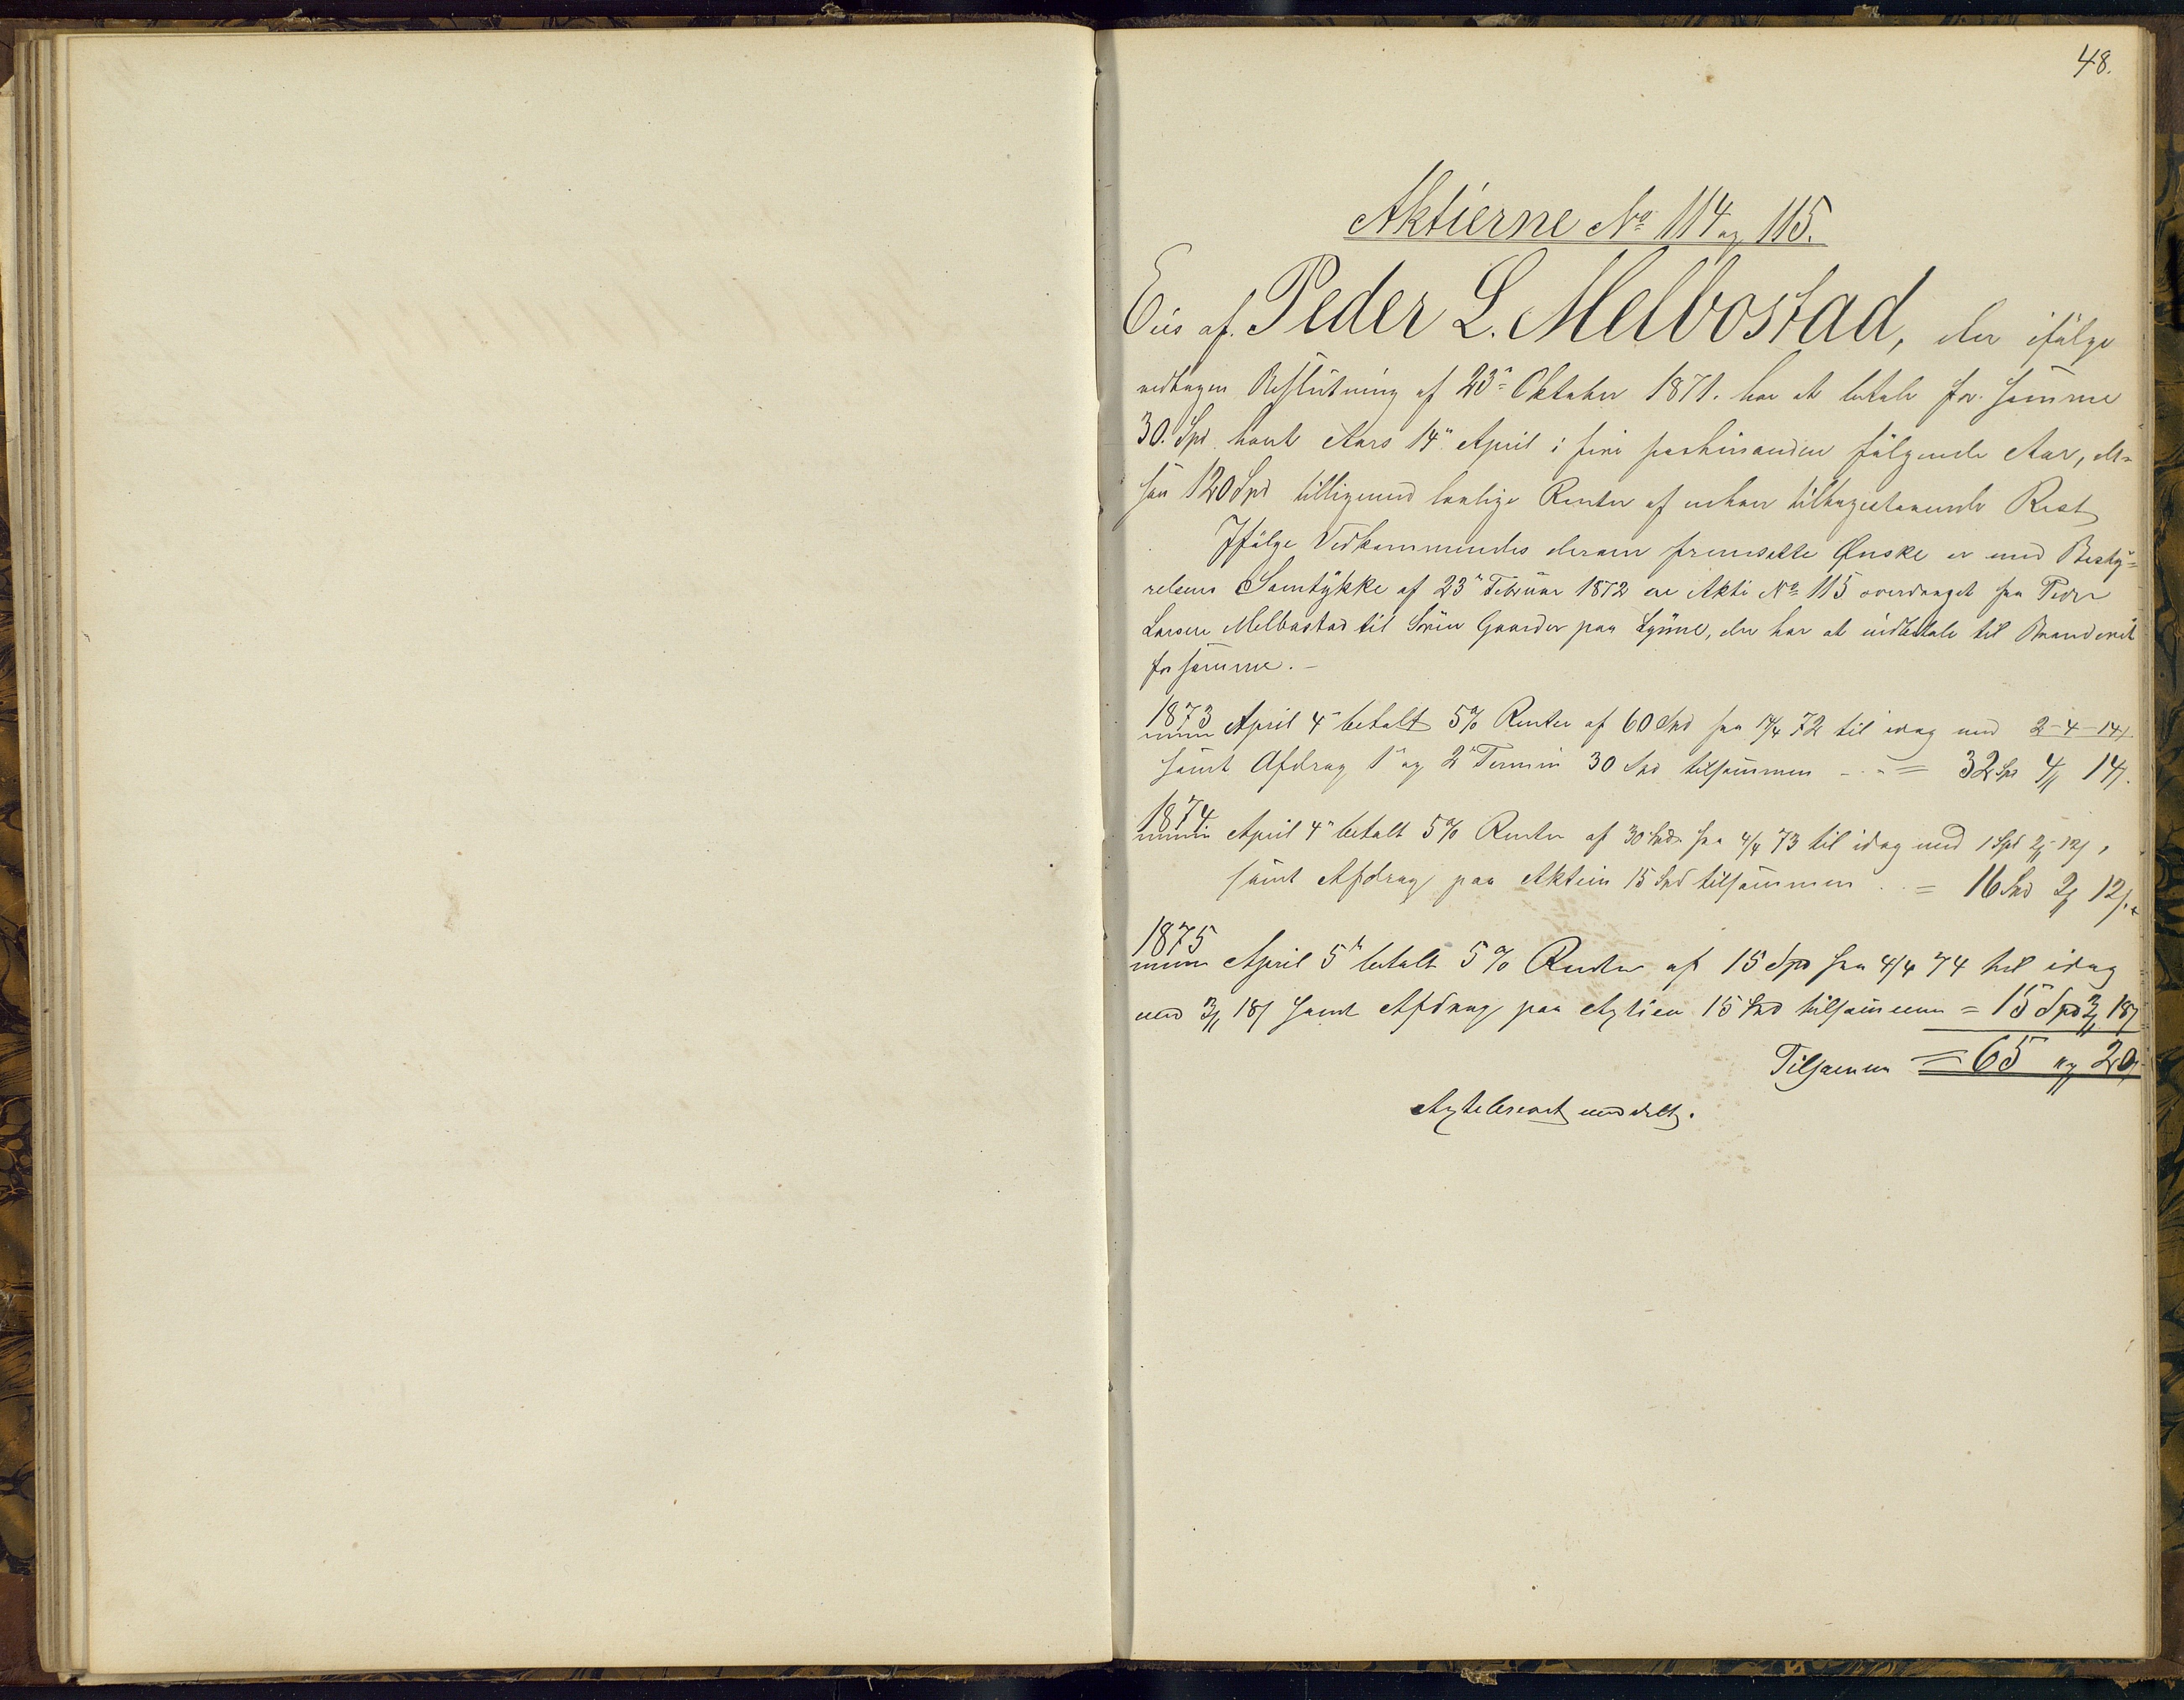 48.
Aktierne No 114 og 115.
Eies af Peder L. Melbostad, der ifølge
vedtagen Beslutning af 23de Oktober 1871. har at betale for samme
30. Spd hvert Aars 14de April i fire paahinanden følgende Aar, alt=
saa 120 Spd tilligemed lovlige Renter af enhver tilbagestaaende Rest
Ifølge Vedkommendes derom fremsatte Ønske er med Besty=
relsens Samtykke af 23de Februar 1872 er Akti No 115 overdraget fra Peder
Larsen Melbostad til Sørin Gaarder paa, der har at indbetale til
for samme. –
1873 April 4de betalt 5% Renter af 60 Spd fra 14/4 72 til idag med 2-4-14
samt Afdrag 1ste og 2den Termin 30 Spd tilsammen = 32 Spd 4 14.
1874 April 4de betalt 5% Renter af 30 Spd fra 4/4 73 til idag med 1 Spd 2 - 12,
samt Afdrag paa Aktien 15 Spd tilsammen = 16 Spd 2 12.
1875 April 5te betalt 5% Renter af 15 Spd fra 4/4 74 til idag
med 3 18 samt Afdrag paa Agtien 15 Spd tilsammen = 15 Spd 3 18
Tilsammen = 65 og 20
Agtiebrevet meddelt.